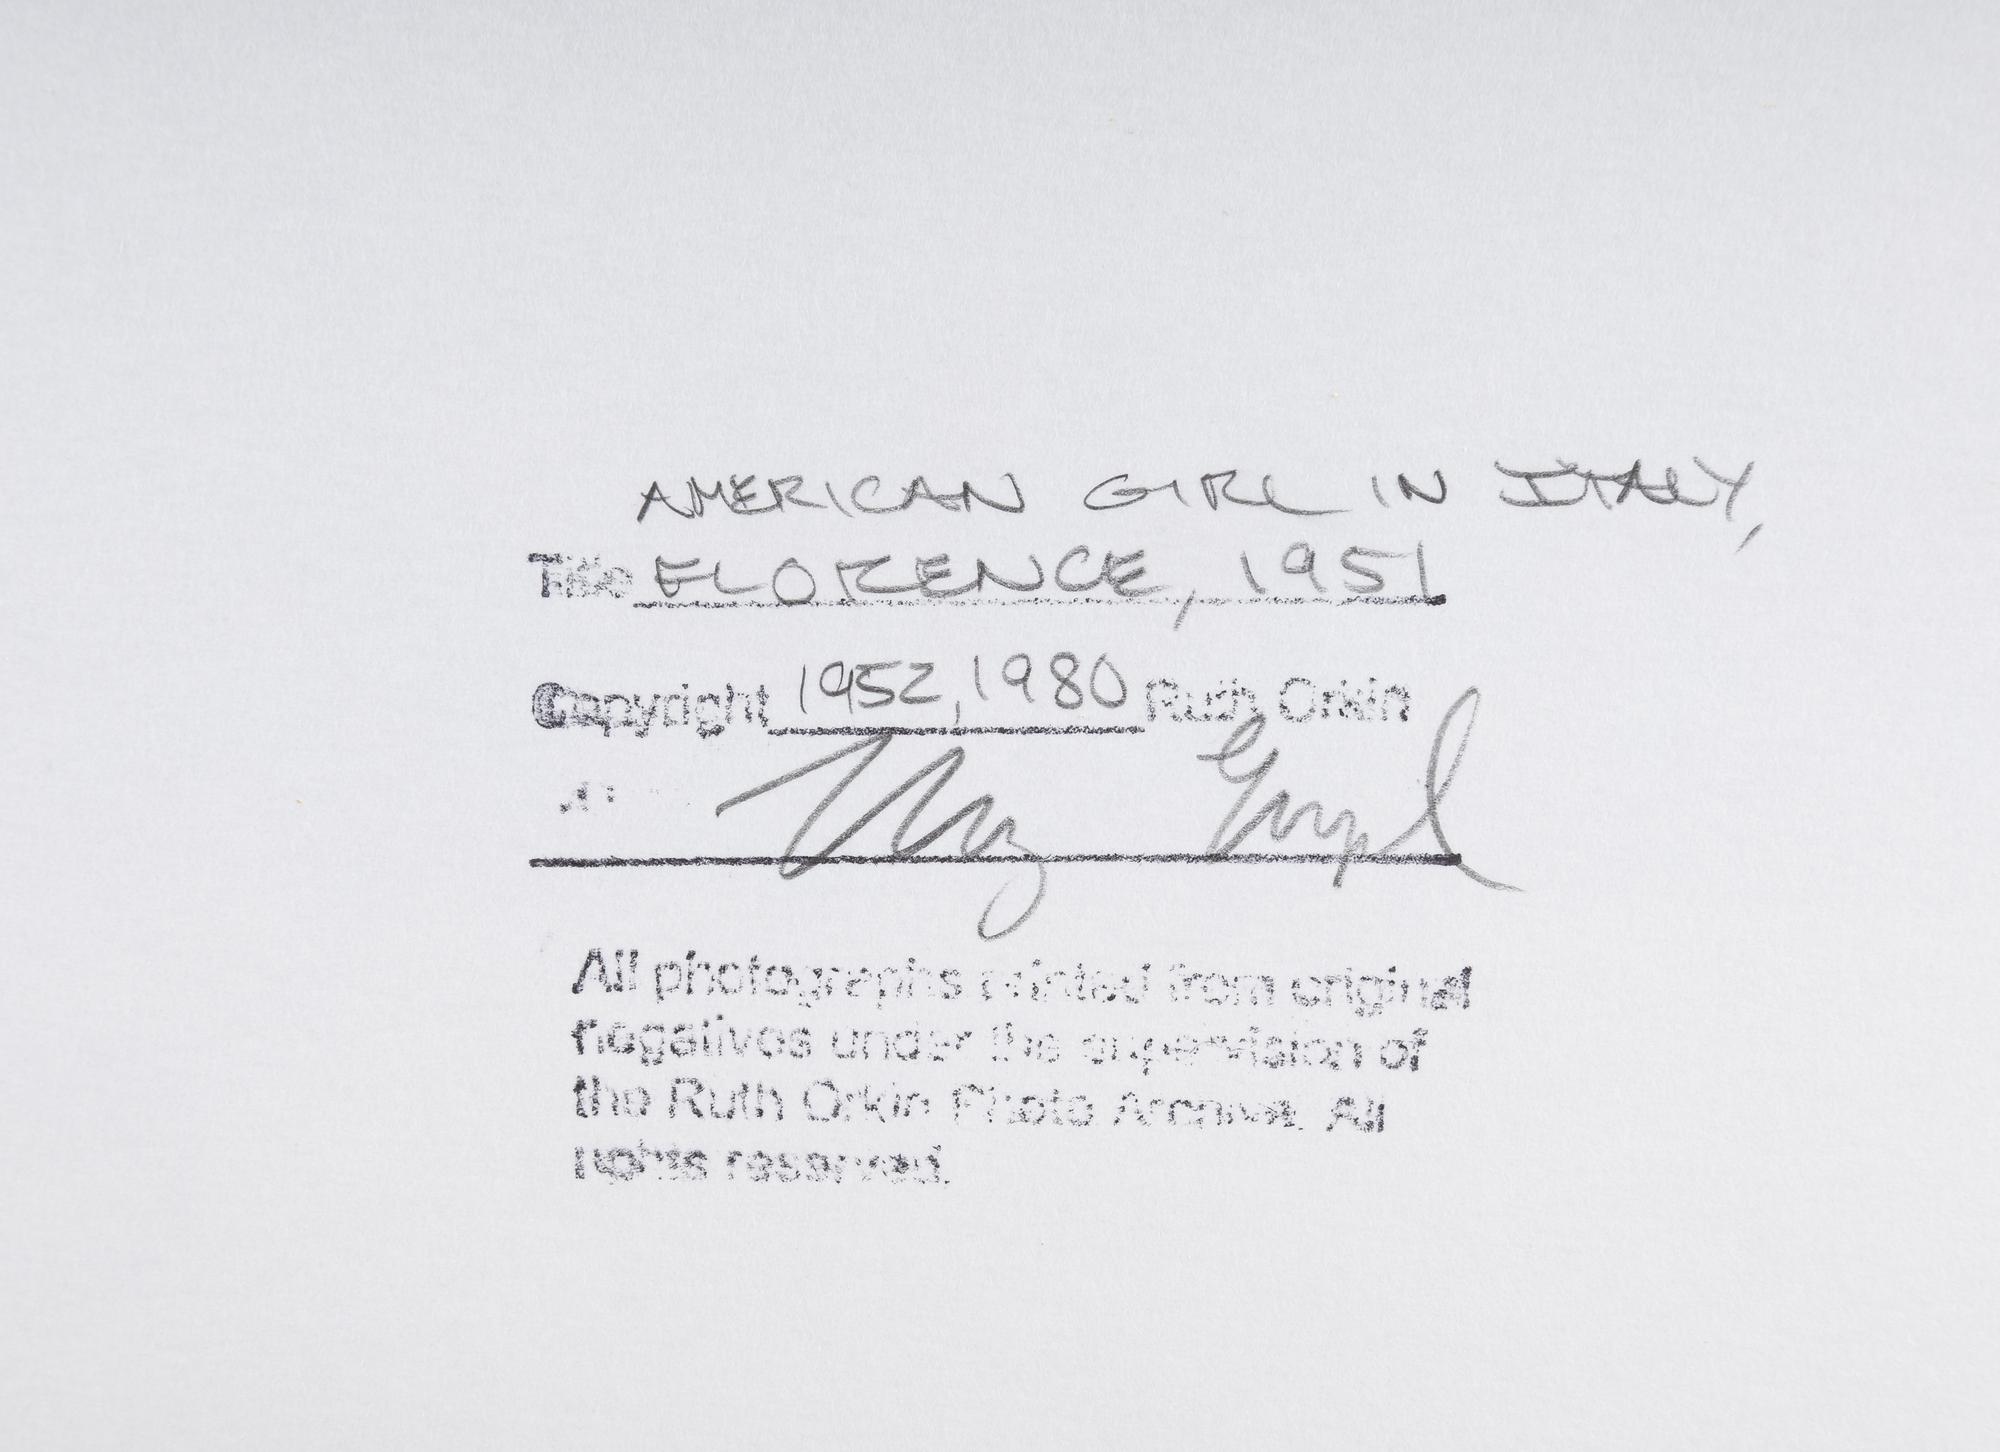 AMERICAN GIRL IN ITALY,
Title FLORENCE, 1951
Copyright 1952, 1980 Ruth Orkin
All photographs printed from original
negatives under the supervision of
the Ruth Orkin Photo Archive. All
rights reserved.